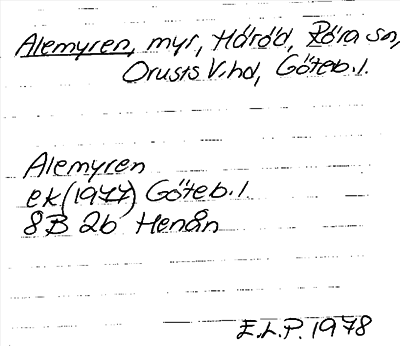 Alemyren, myr, Håröd, Röra sn,
Orusts V. hd, Göteb. l.
Alemyren
ek (1977) Göteb. l.
8B 2b Henån
E.L.P. 1978